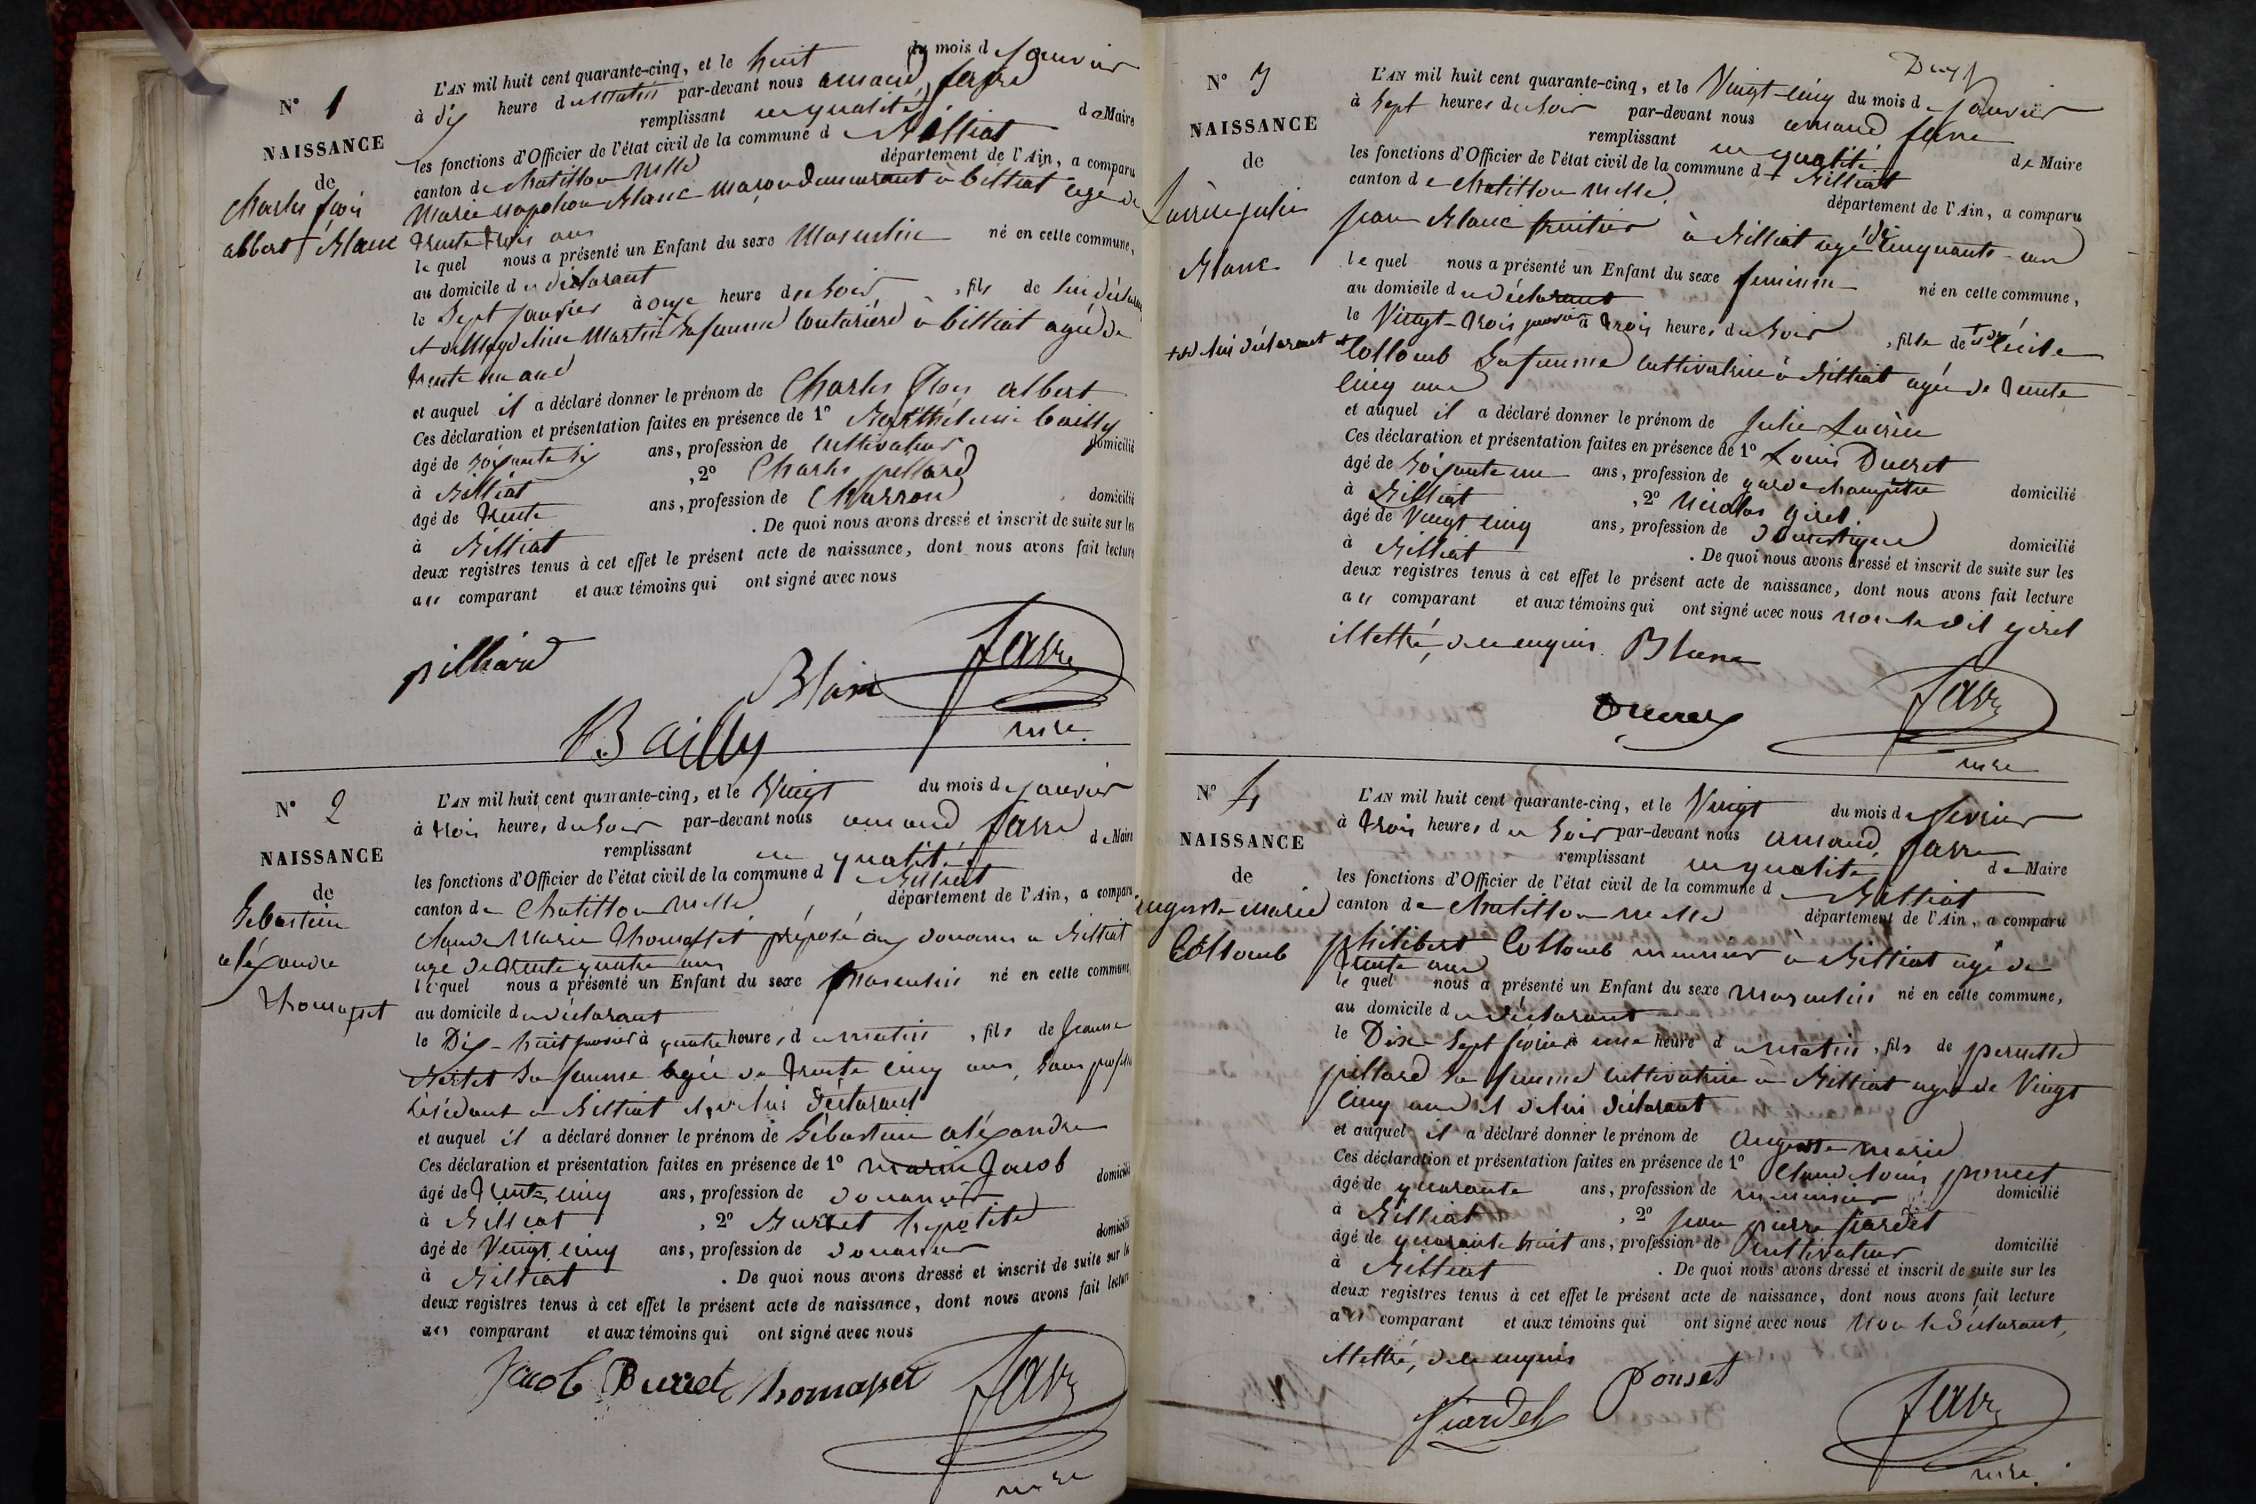 N° 1
NAISSANCE
de
Charles fçois
albert Blanc
L'AN mil huit cent quarante-cinq, et le huit du mois de Janvier
à dix heure du matin par-devant nous amand favre
remplissant en qualité de Maire
les fonctions d'Officier de l'état civil de la commune de Billiat
canton de chatillon Mlle département de l'Ain, a comparu
Marie napoléon Blanc maçon demeurant à billiat age de
trente trois ans
lequel nous a présenté un Enfant du sexe Masculin né en cette commune,
au domicile du déclarant
le Sept janvier à onze heure du Soir, fils de lui déclarant
et de Magdeline Martin Sa femme Couturière à billiat agée de
trente un ans
et auquel il a déclaré donner le prénom de Charles fçois albert
Ces déclaration et présentation faites en présence de 1° Barthélemi bailly
âgé de soixante dix ans, profession de cultivateur domicilié
à Billiat, 2° Charles pillard
âgé de trente ans, profession de Charron domicilié
à Billiat. De quoi nous avons dressé et inscrit de suite sur les
deux registres tenus à cet effet le présent acte de naissance, dont nous avons fait lecture
aux comparant et aux témoins qui ont signé avec nous
pilliard Blanc favre
Bailly mire
N° 2
NAISSANCE
de
Sebastien
aléxandre
Thomasset
L'AN mil huit cent quarante-cinq, et le Vingt du mois de janvier
à trois heures du Soir par-devant nous amand favre
remplissant en qualité de Maire
les fonctions d'Officier de l'état civil de la commune de Billiat
canton de Chatillon Mlle département de l'Ain, a comparu
Claude Marie Thomasset préposé aux douanes à Billiat
age de trente quatre ans
lequel nous a présenté un Enfant du sexe masculin né en cette commune
au domicile du déclarant
le Dix-huit janvier à quatre heures du matin, fils de Jeanne
Bertet Sa femme agée de trente cinq ans, Sans profession
Résidant à Billiat et de lui déclarant
et auquel il a déclaré donner le prénom de Sébastien aléxandre
Ces déclaration et présentation faites en présence de 1° marin Jacob
âgé de trente cinq ans, profession de douanier domicilié
à Billiat, 2° Burret hipolite
âgé de Vingt cinq ans, profession de douanier domicilié
à Billiat. De quoi nous avons dressé et inscrit de suite sur les
deux registres tenus à cet effet le présent acte de naissance, dont nous avons fait lecture
aux comparant et aux témoins qui ont signé avec nous
Jacob Burret thomasset favre
mire
N° 3
NAISSANCE
de
Lucrèce julie
Blanc
+ et de lui déclarant
L'AN mil huit cent quarante-cinq, et le Vingt-cinq du mois de janvier
à Sept heures du Soir par-devant nous amand favre
remplissant en qualité de Maire
les fonctions d'Officier de l'état civil de la commune de Billiat
canton de chatillon Mlle département de l'Ain, a comparu
jean Blanc fruitier à Billiat agé de Cinquante-un
lequel nous a présenté un Enfant du sexe feminin né en cette commune,
au domicile du déclarant
le Vingt-trois janvier à trois heures du Soir, fille de Cécile
Collomb Sa femme Cultivatrice à Billiat agée de trente
cinq ans
et auquel il a déclaré donner le prénom de Julie Lucrèce
Ces déclaration et présentation faites en présence de 1° Louis Ducret
âgé de Soixante un ans, profession de garde champêtre domicilié
à Billiat, 2° Nicolas girel
âgé de Vingt cinq ans, profession de domestique domicilié
à Billiat. De quoi nous avons dressé et inscrit de suite sur les
deux registres tenus à cet effet le présent acte de naissance, dont nous avons fait lecture
aux comparant et aux témoins qui ont signé avec nous non le dit girel
illettré, de ce enquis. Blanc
Ducret favre
mire
N° 4
NAISSANCE
de
auguste marie
Collomb
L'AN mil huit cent quarante-cinq, et le Vingt du mois de fevrier
à trois heures du Soir par-devant nous amand favre
remplissant en qualité de Maire
les fonctions d'Officier de l'état civil de la commune de Billiat
canton de chatillon Mlle département de l'Ain, a comparu
philibert Collomb meunier à Billiat agé de
trente ans
lequel nous a présenté un Enfant du sexe masculin né en cette commune,
au domicile du déclarant
le Dix Sept février à une heure du matin, fils de pernette
pillard Sa femme Cultivatrice à Billiat agée de Vingt
cinq ans et de lui déclarant
et auquel il a déclaré donner le prénom de auguste marie
Ces déclaration et présentation faites en présence de 1° Claude louis poncet
âgé de quarante ans, profession de menuisier domicilié
à Billiat, 2° jean pierre fiardet
âgé de quarante huit ans, profession de Cultivateur domicilié
à Billiat. De quoi nous avons dressé et inscrit de suite sur les
deux registres tenus à cet effet le présent acte de naissance, dont nous avons fait lecture
aux comparant et aux témoins qui ont signé avec nous Non le déclarant,
illettré, de ce enquis
fiardet Ponset favre
mire